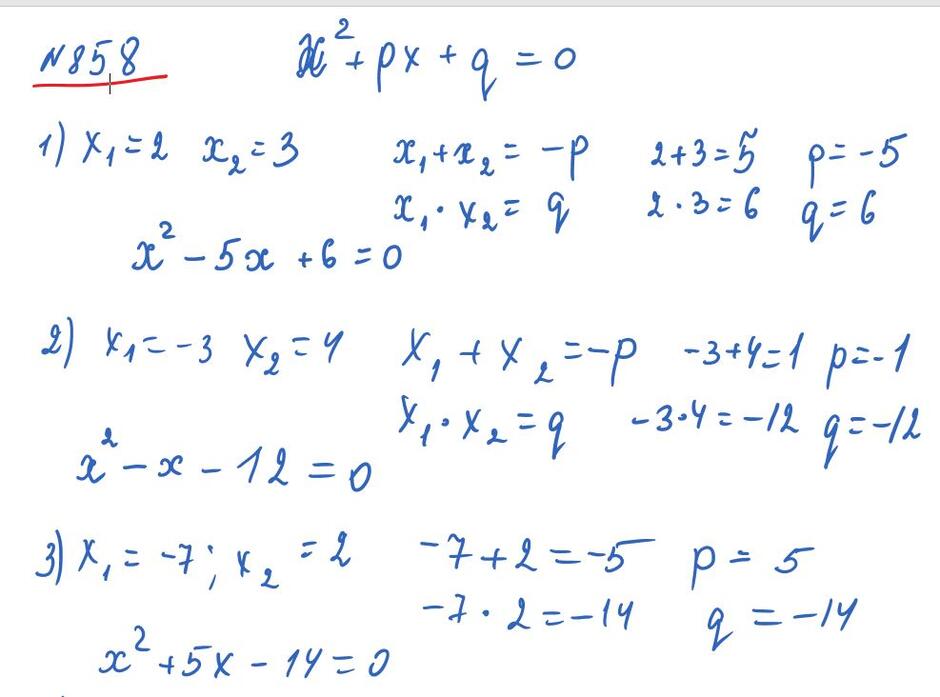 N858 x² + px + q = 0
1) x₁ = 2 x₂ = 3 x₁ + x₂ = -p 2 + 3 = 5 p = -5
x₁ · x₂ = q 2 · 3 = 6 q = 6
x² - 5x + 6 = 0
2) x₁ = -3 x₂ = 4 x₁ + x₂ = -p -3 + 4 = 1 p = -1
x₁ · x₂ = q -3 · 4 = -12 q = -12
x² - x - 12 = 0
3) x₁ = -7; x₂ = 2 -7 + 2 = -5 p = 5
-7 · 2 = -14 q = -14
x² + 5x - 14 = 0